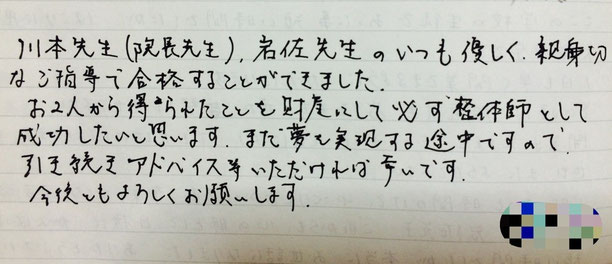 川本先生(院長先生)、岩佐先生のいつも優しく、親身切
なご指導で合格することができました。
お2人から得られたことを財産にして必ず整体師として
成功したいと思います。まだ夢を実現する途中ですので、
引き続きアドバイス等いただければ幸いです。
今後ともよろしくお願いします。